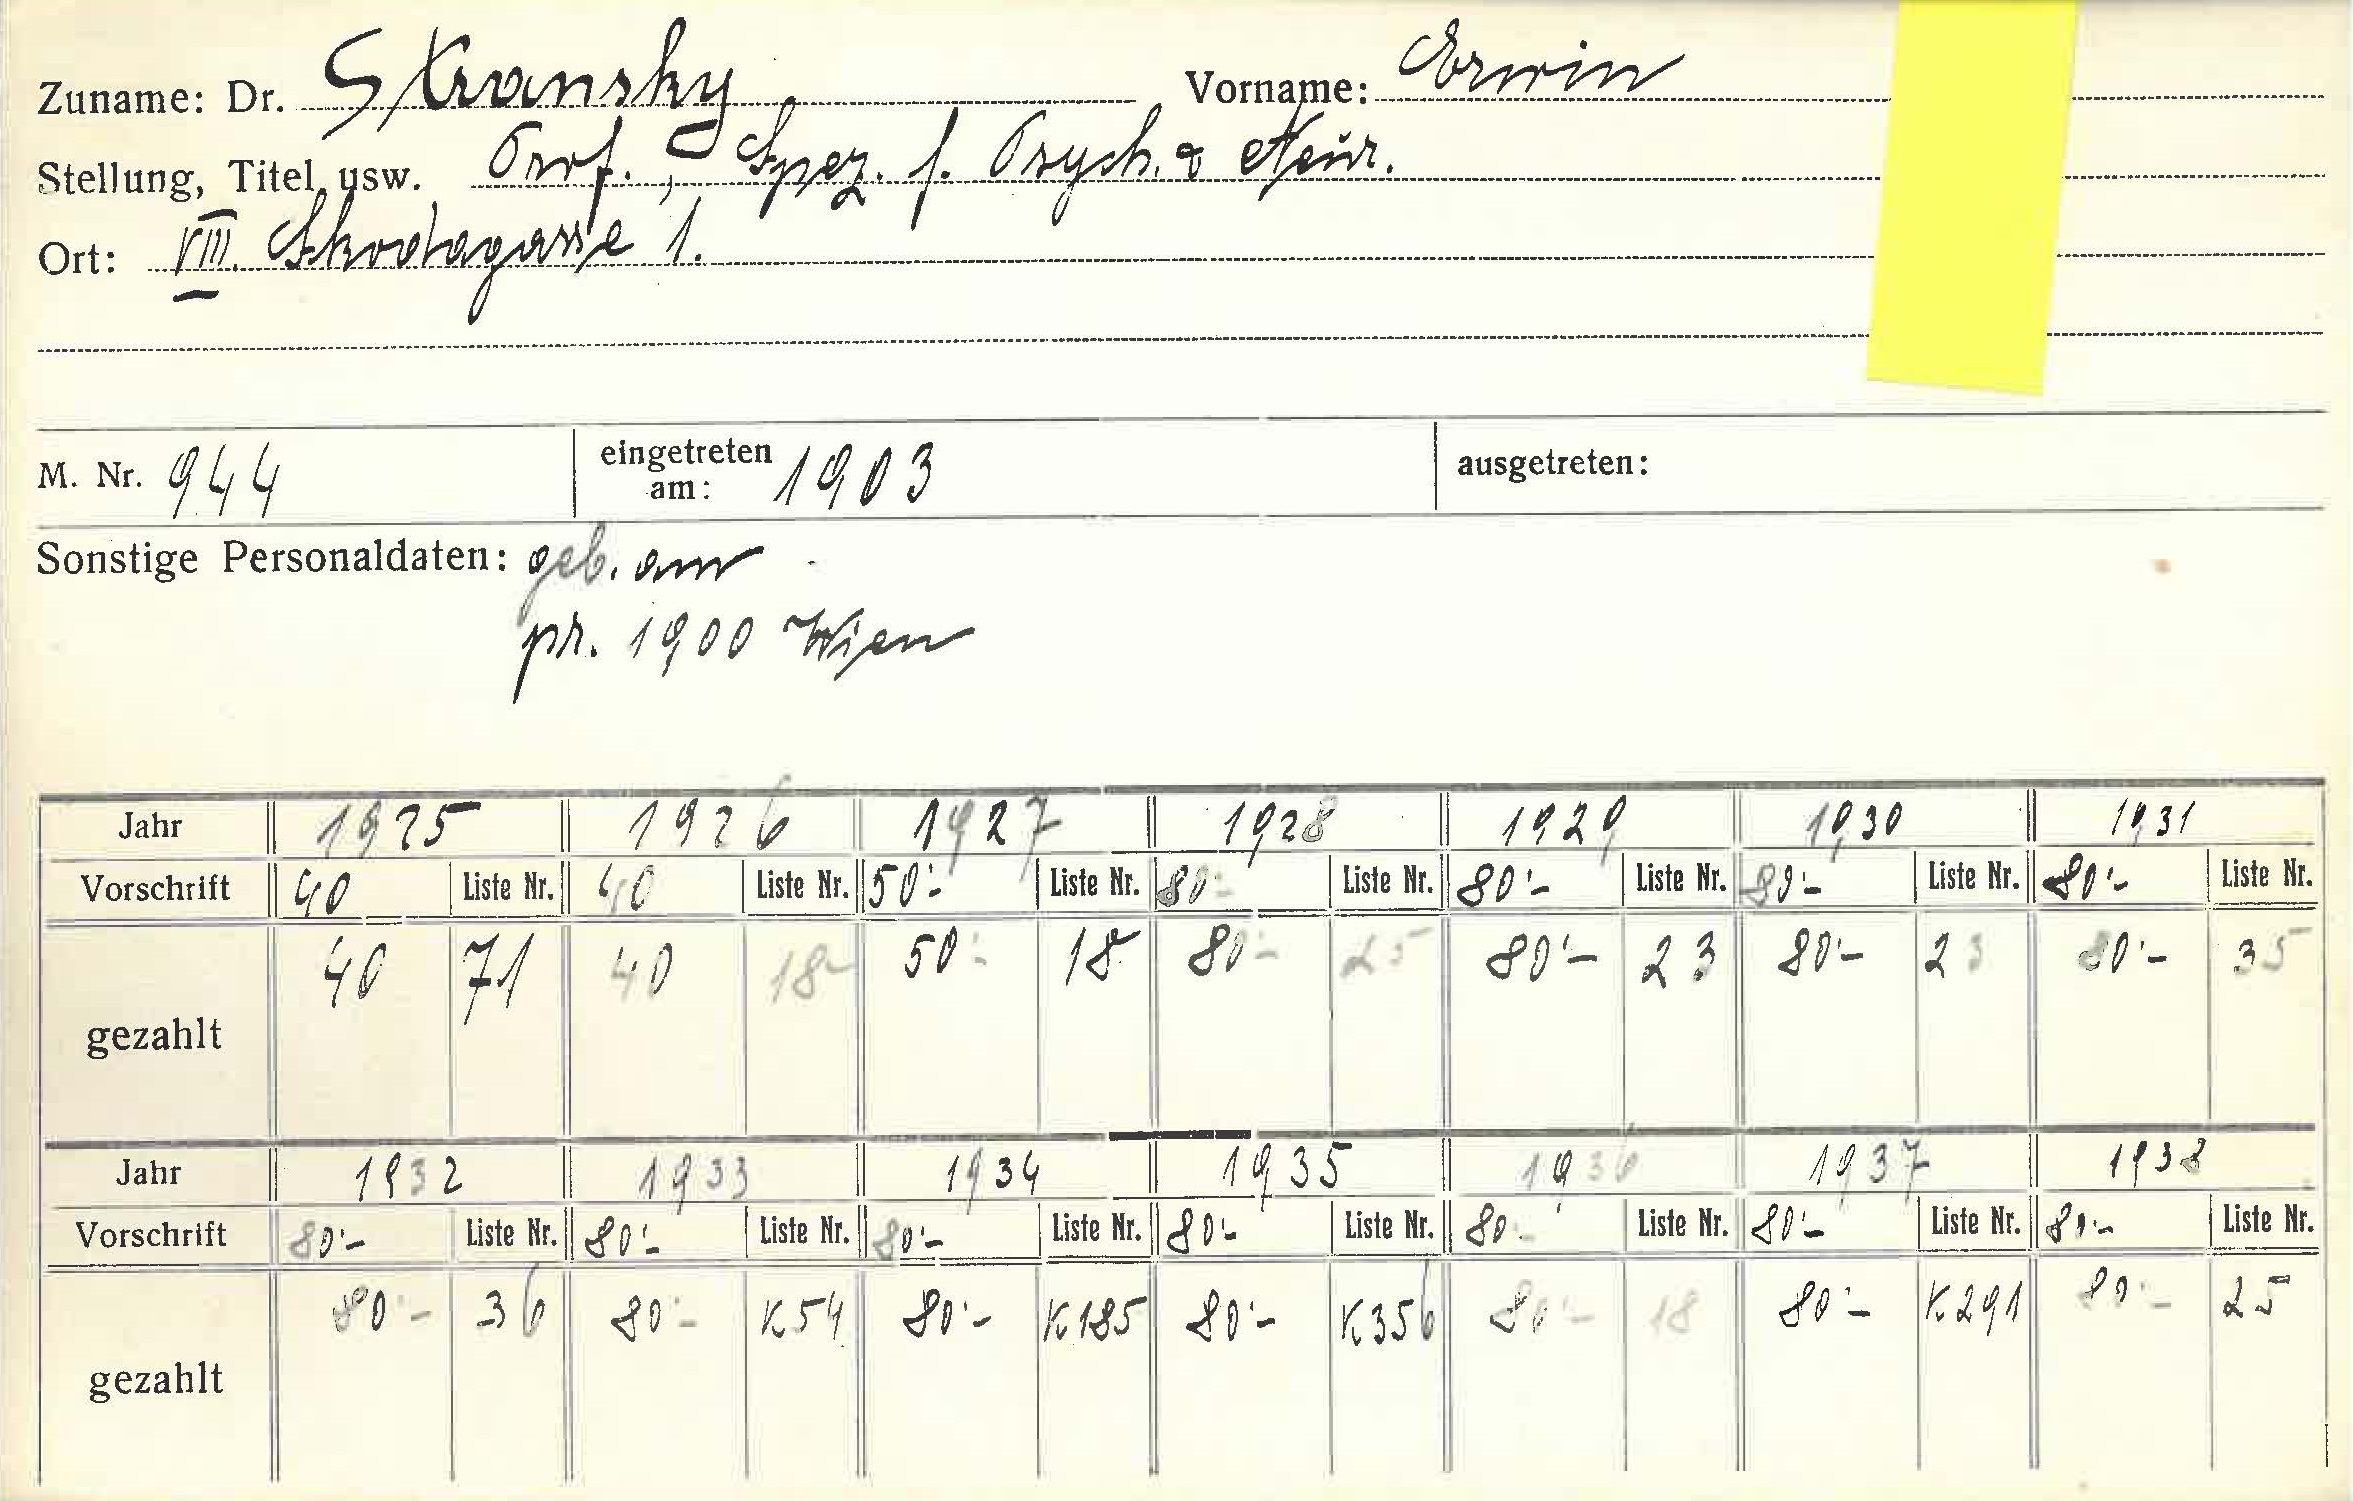 Zuname: Dr. Stransky Vorname: Erwin
Stellung, Titel usw. Prof., Spez. f. Psych. & Neur.
Ort: VIII. Skodagasse 1.
M. Nr. 944 eingetreten am: 1903 ausgetreten:
Sonstige Personaldaten: geb. am
pr. 1900 Wien
Jahr 1925 1926 1927 1928 1929 1930 1931
Vorschrift 40 Liste Nr. 40 Liste Nr. 50'- Liste Nr. 80'- Liste Nr. 80'- Liste Nr. 80'- Liste Nr. 80'- Liste Nr.
gezahlt 40 71 40 18 50'- 18 80'- 25 80'- 23 80'- 23 80'- 35
Jahr 1932 1933 1934 1935 1936 1937 1938
Vorschrift 80'- Liste Nr. 80'- Liste Nr. 80'- Liste Nr. 80'- Liste Nr. 80'- Liste Nr. 80'- Liste Nr. 80'- Liste Nr.
gezahlt 80'- 36 80'- K54 80'- K185 80'- K356 80'- 18 80'- K291 80'- 25